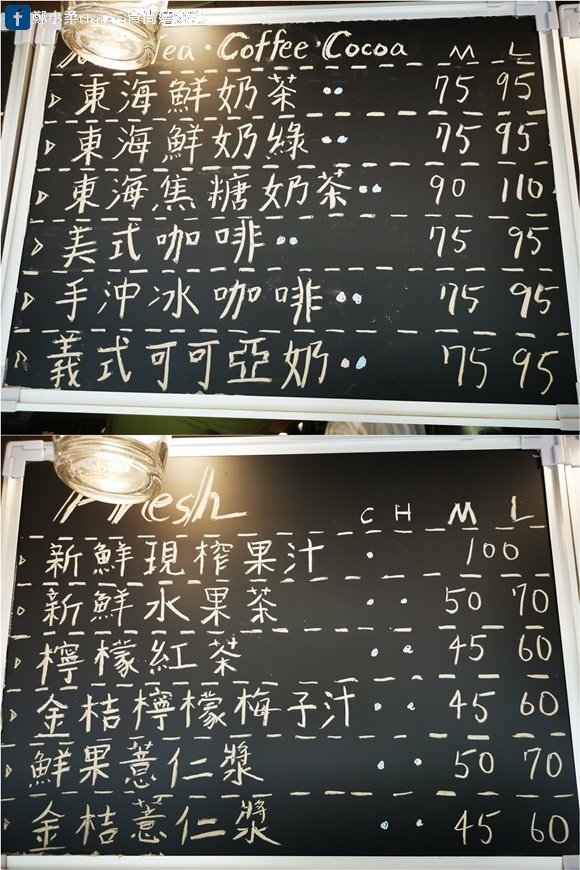 鄭小柔
Tea · Coffee · Cocoa M L
東海鮮奶茶 75 95
東海鮮奶綠 75 95
東海焦糖奶茶 90 110
美式咖啡 75 95
手沖冰咖啡 75 95
義式可可亞奶 75 95
Fresh C H M L
新鮮現榨果汁 100
新鮮水果茶 50 70
檸檬紅茶 45 60
金桔檸檬梅子汁 45 60
鮮果薏仁漿 50 70
金桔薏仁漿 45 60